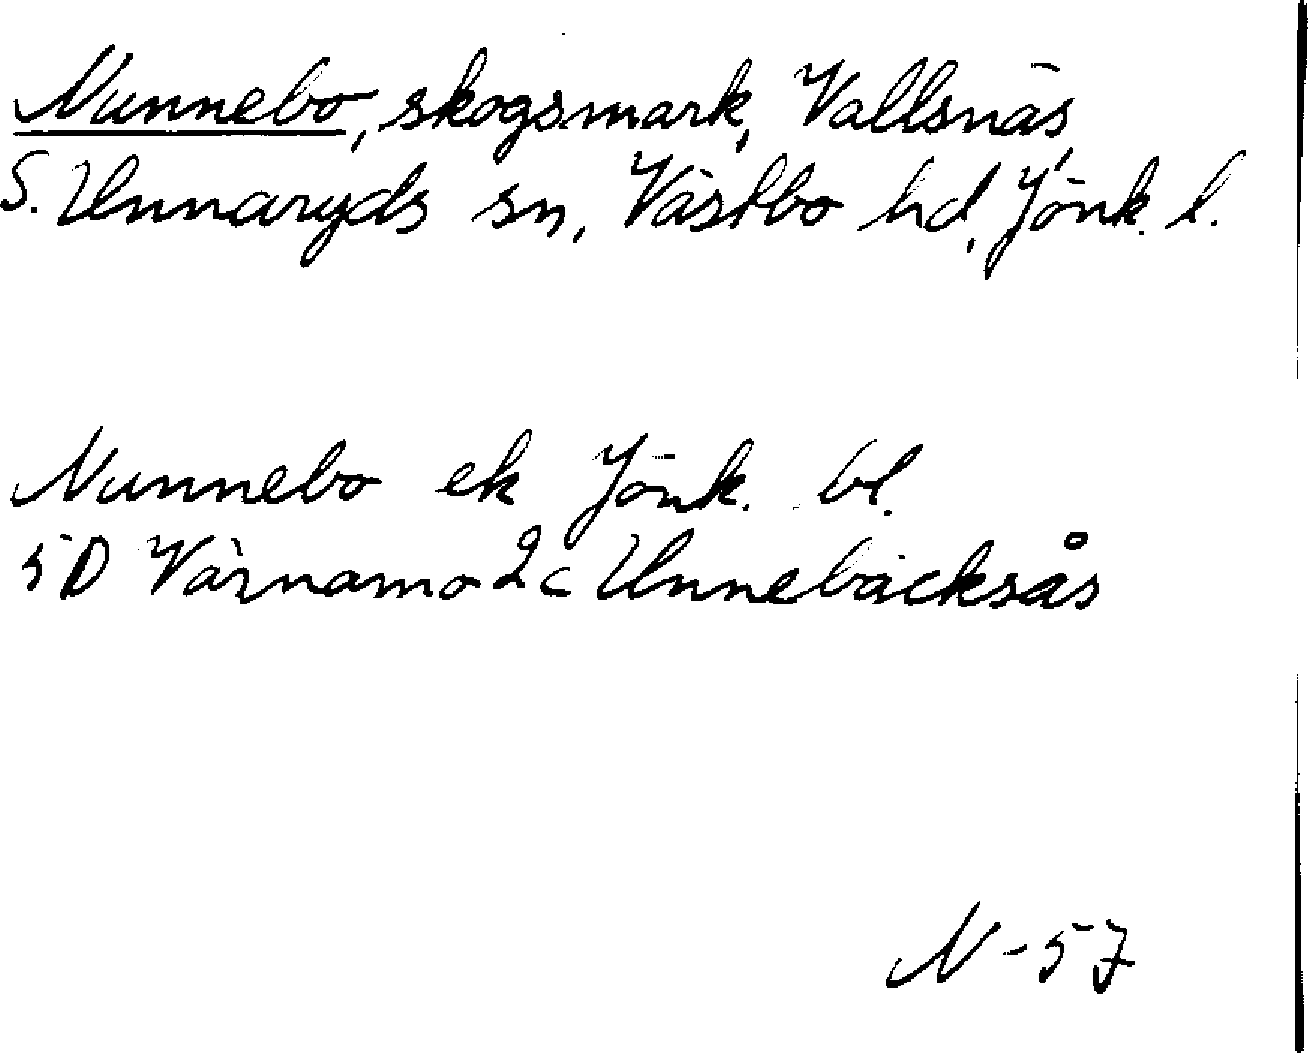 Nunnebo, skogsmark, Vallsnäs,
S. Unnaryds sn, Västbo hd, Jönk. l.
Nunnebo ek Jönk. bl.
5D Värnamo 2c Unnebäcksås
N-57